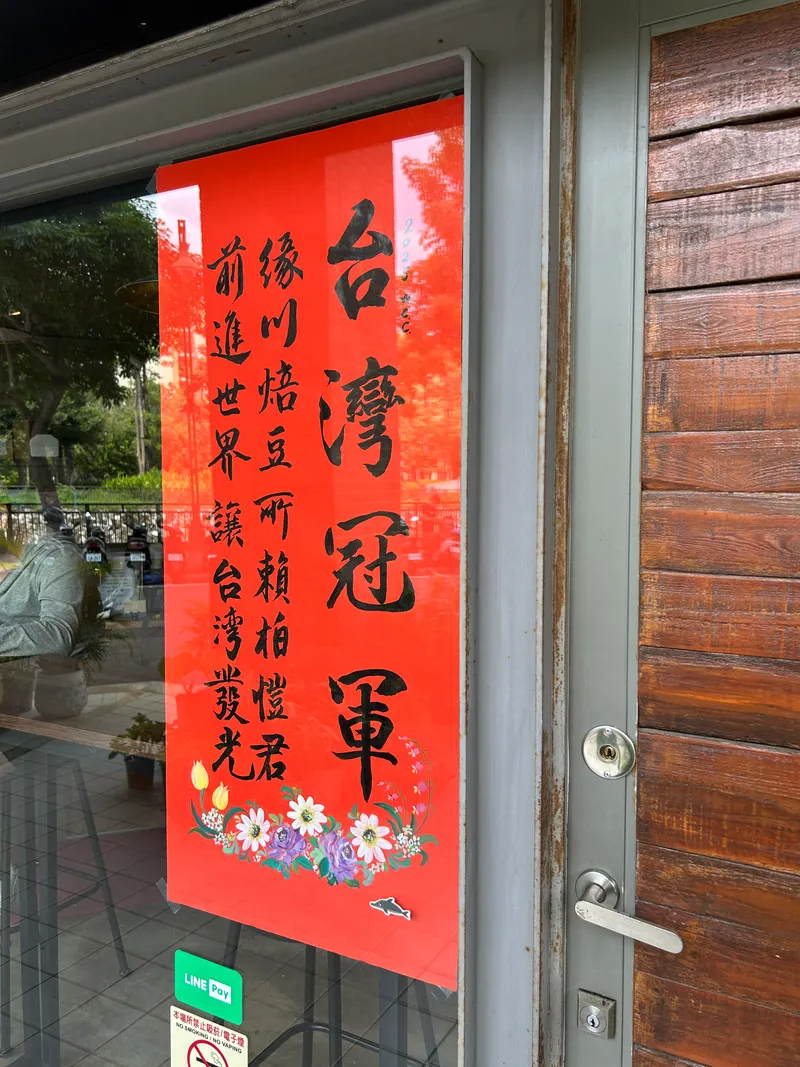 2025 W.C.C.
台灣冠軍
緣川焙豆所賴柏愷君
前進世界讓台灣發光
LINE Pay
本場所禁止吸菸/電子煙
NO SMOKING / NO VAPING